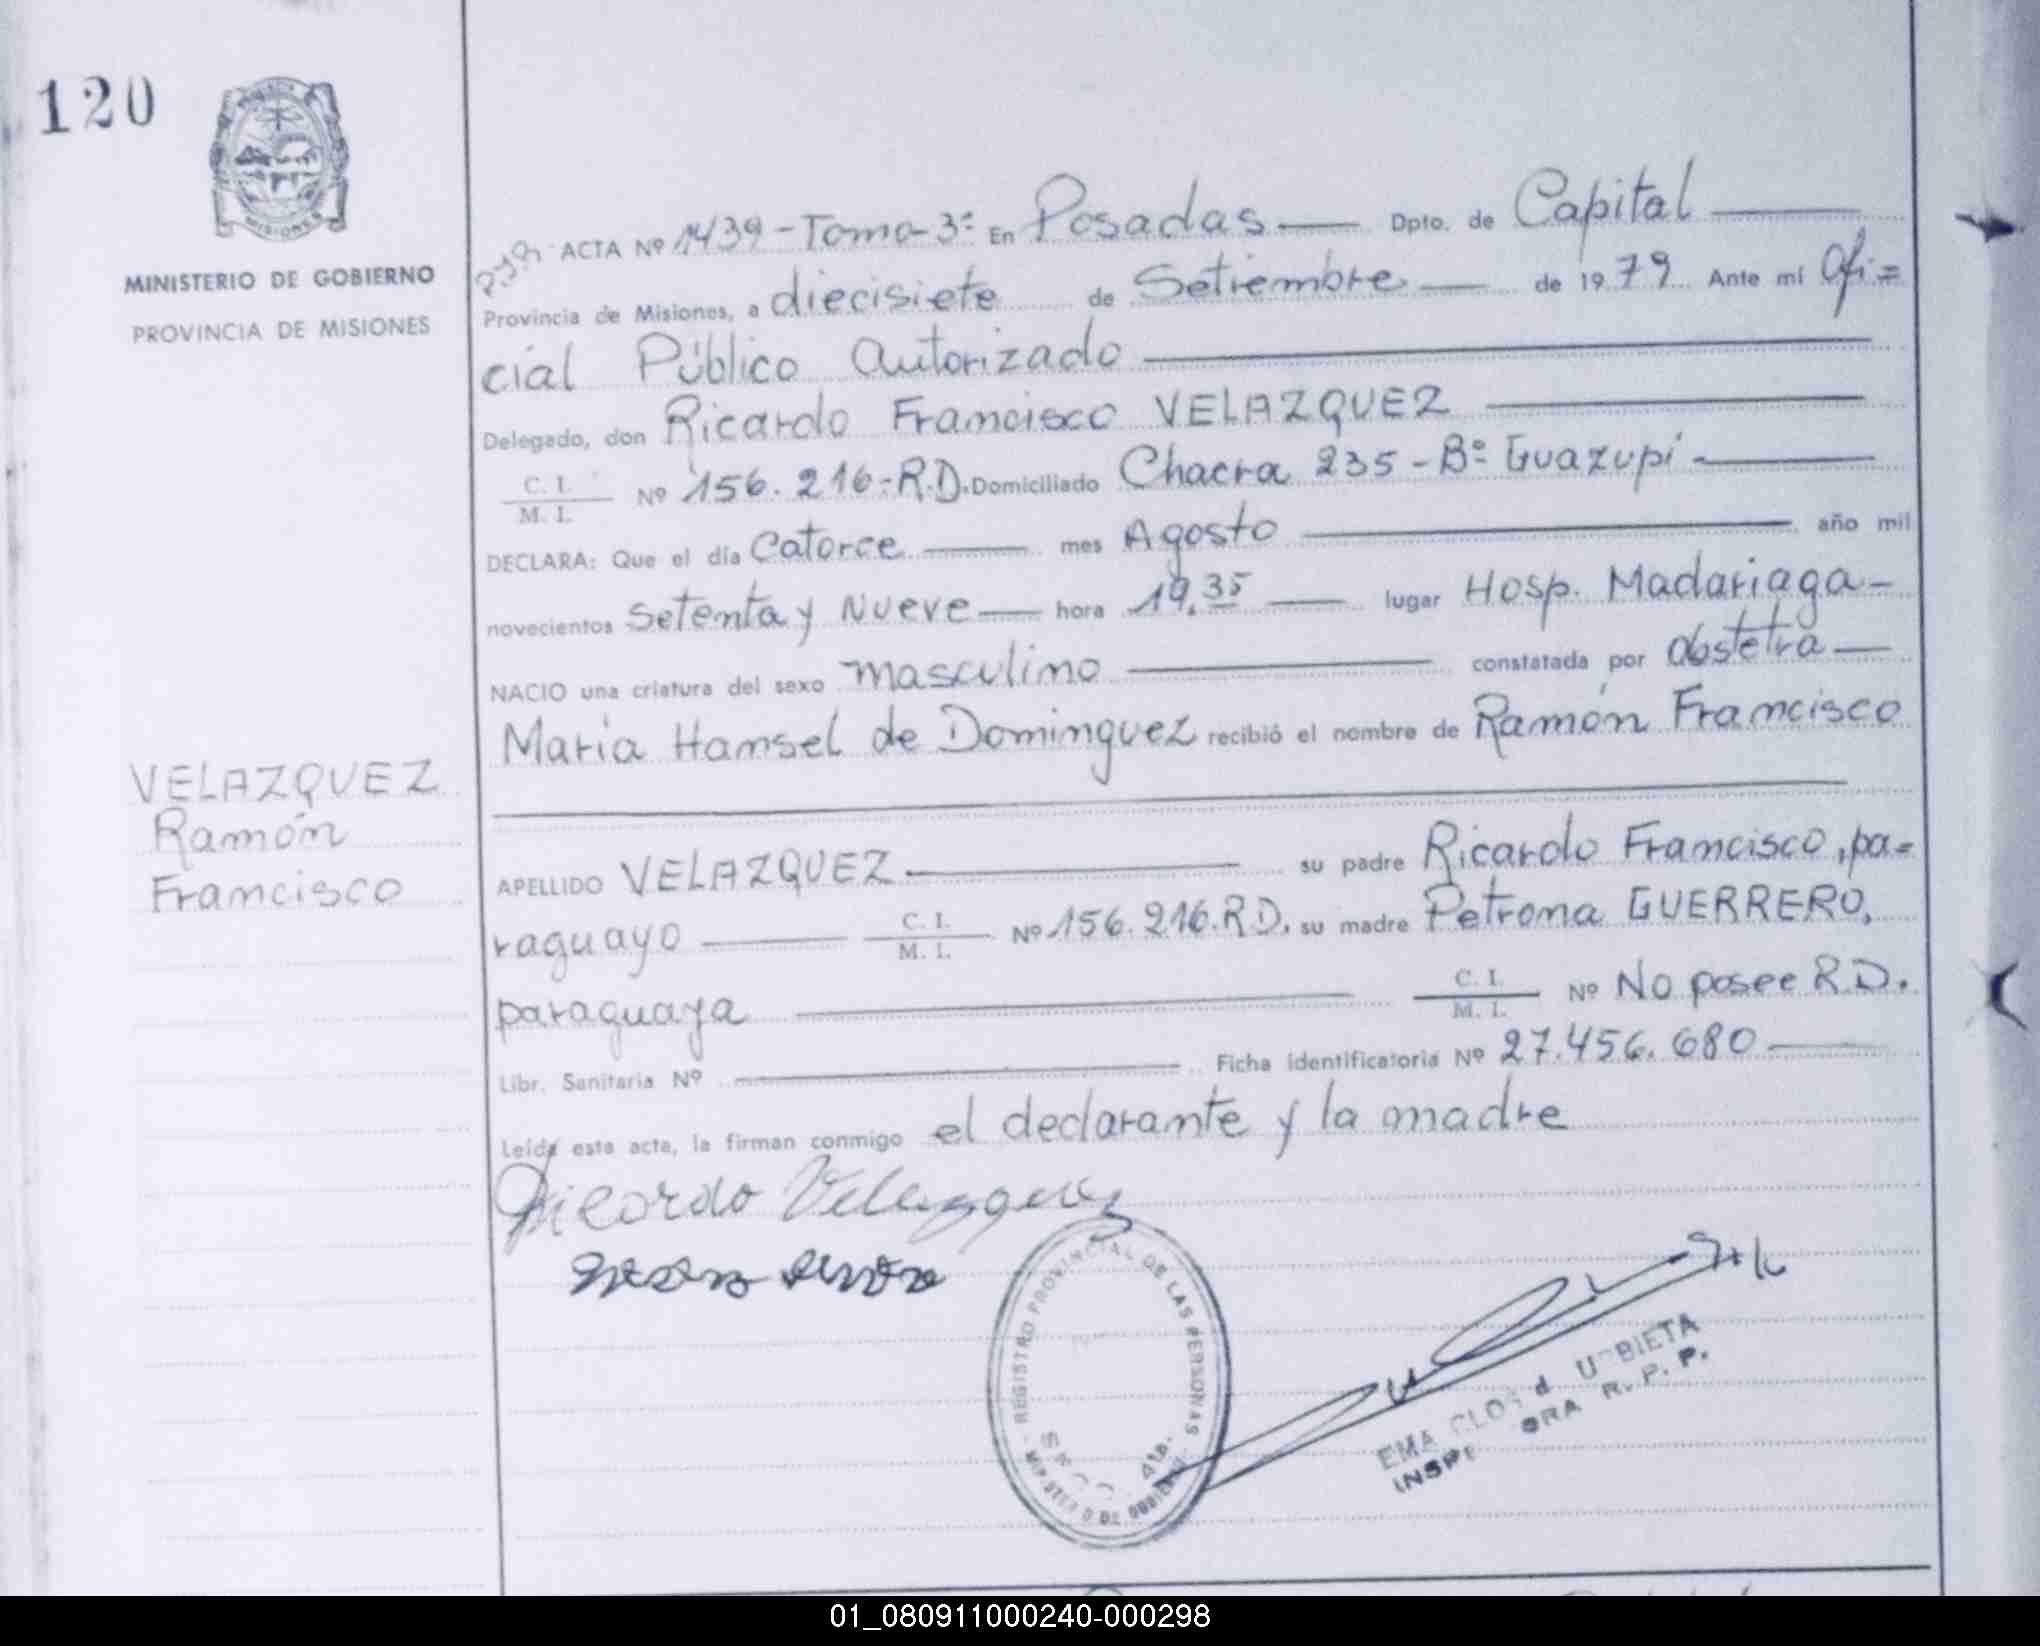 120
MINISTERIO DE GOBIERNO
PROVINCIA DE MISIONES
MISIONES
ACTA Nº 1439-Tomo-3º En Posadas Dpto. de Capital
Provincia de Misiones, a diecisiete de Setiembre de 1979 Ante mí Ofi=
cial Público Autorizado
Delegado, don Ricardo Francisco VELAZQUEZ
C. I.
M. I. Nº 156.216-R.D. Domiciliado Chacra 235-Bº Guazupí
DECLARA: Que el día Catorce mes Agosto año mil
novecientos Setenta y Nueve hora 19.35 lugar Hosp. Madariaga-
NACIO una criatura del sexo masculino constatada por obstétra
María Hamsel de Dominguez recibió el nombre de Ramón Francisco
VELAZQUEZ
Ramón
Francisco
APELLIDO VELAZQUEZ su padre Ricardo Francisco, pa=
raguayo C. I.
M. I. Nº 156.216.R.D. su madre Petrona GUERRERO,
paraguaya C. I.
M. I. Nº No posee R.D.
Libr. Sanitaria Nº Ficha identificatoria Nº 27.456.680
Leída esta acta, la firman conmigo el declarante y la madre
Ricardo Velazquez
REGISTRO PROVINCIAL DE LAS PERSONAS
EMA URBIETA
R. P. P.
01_080911000240-000298